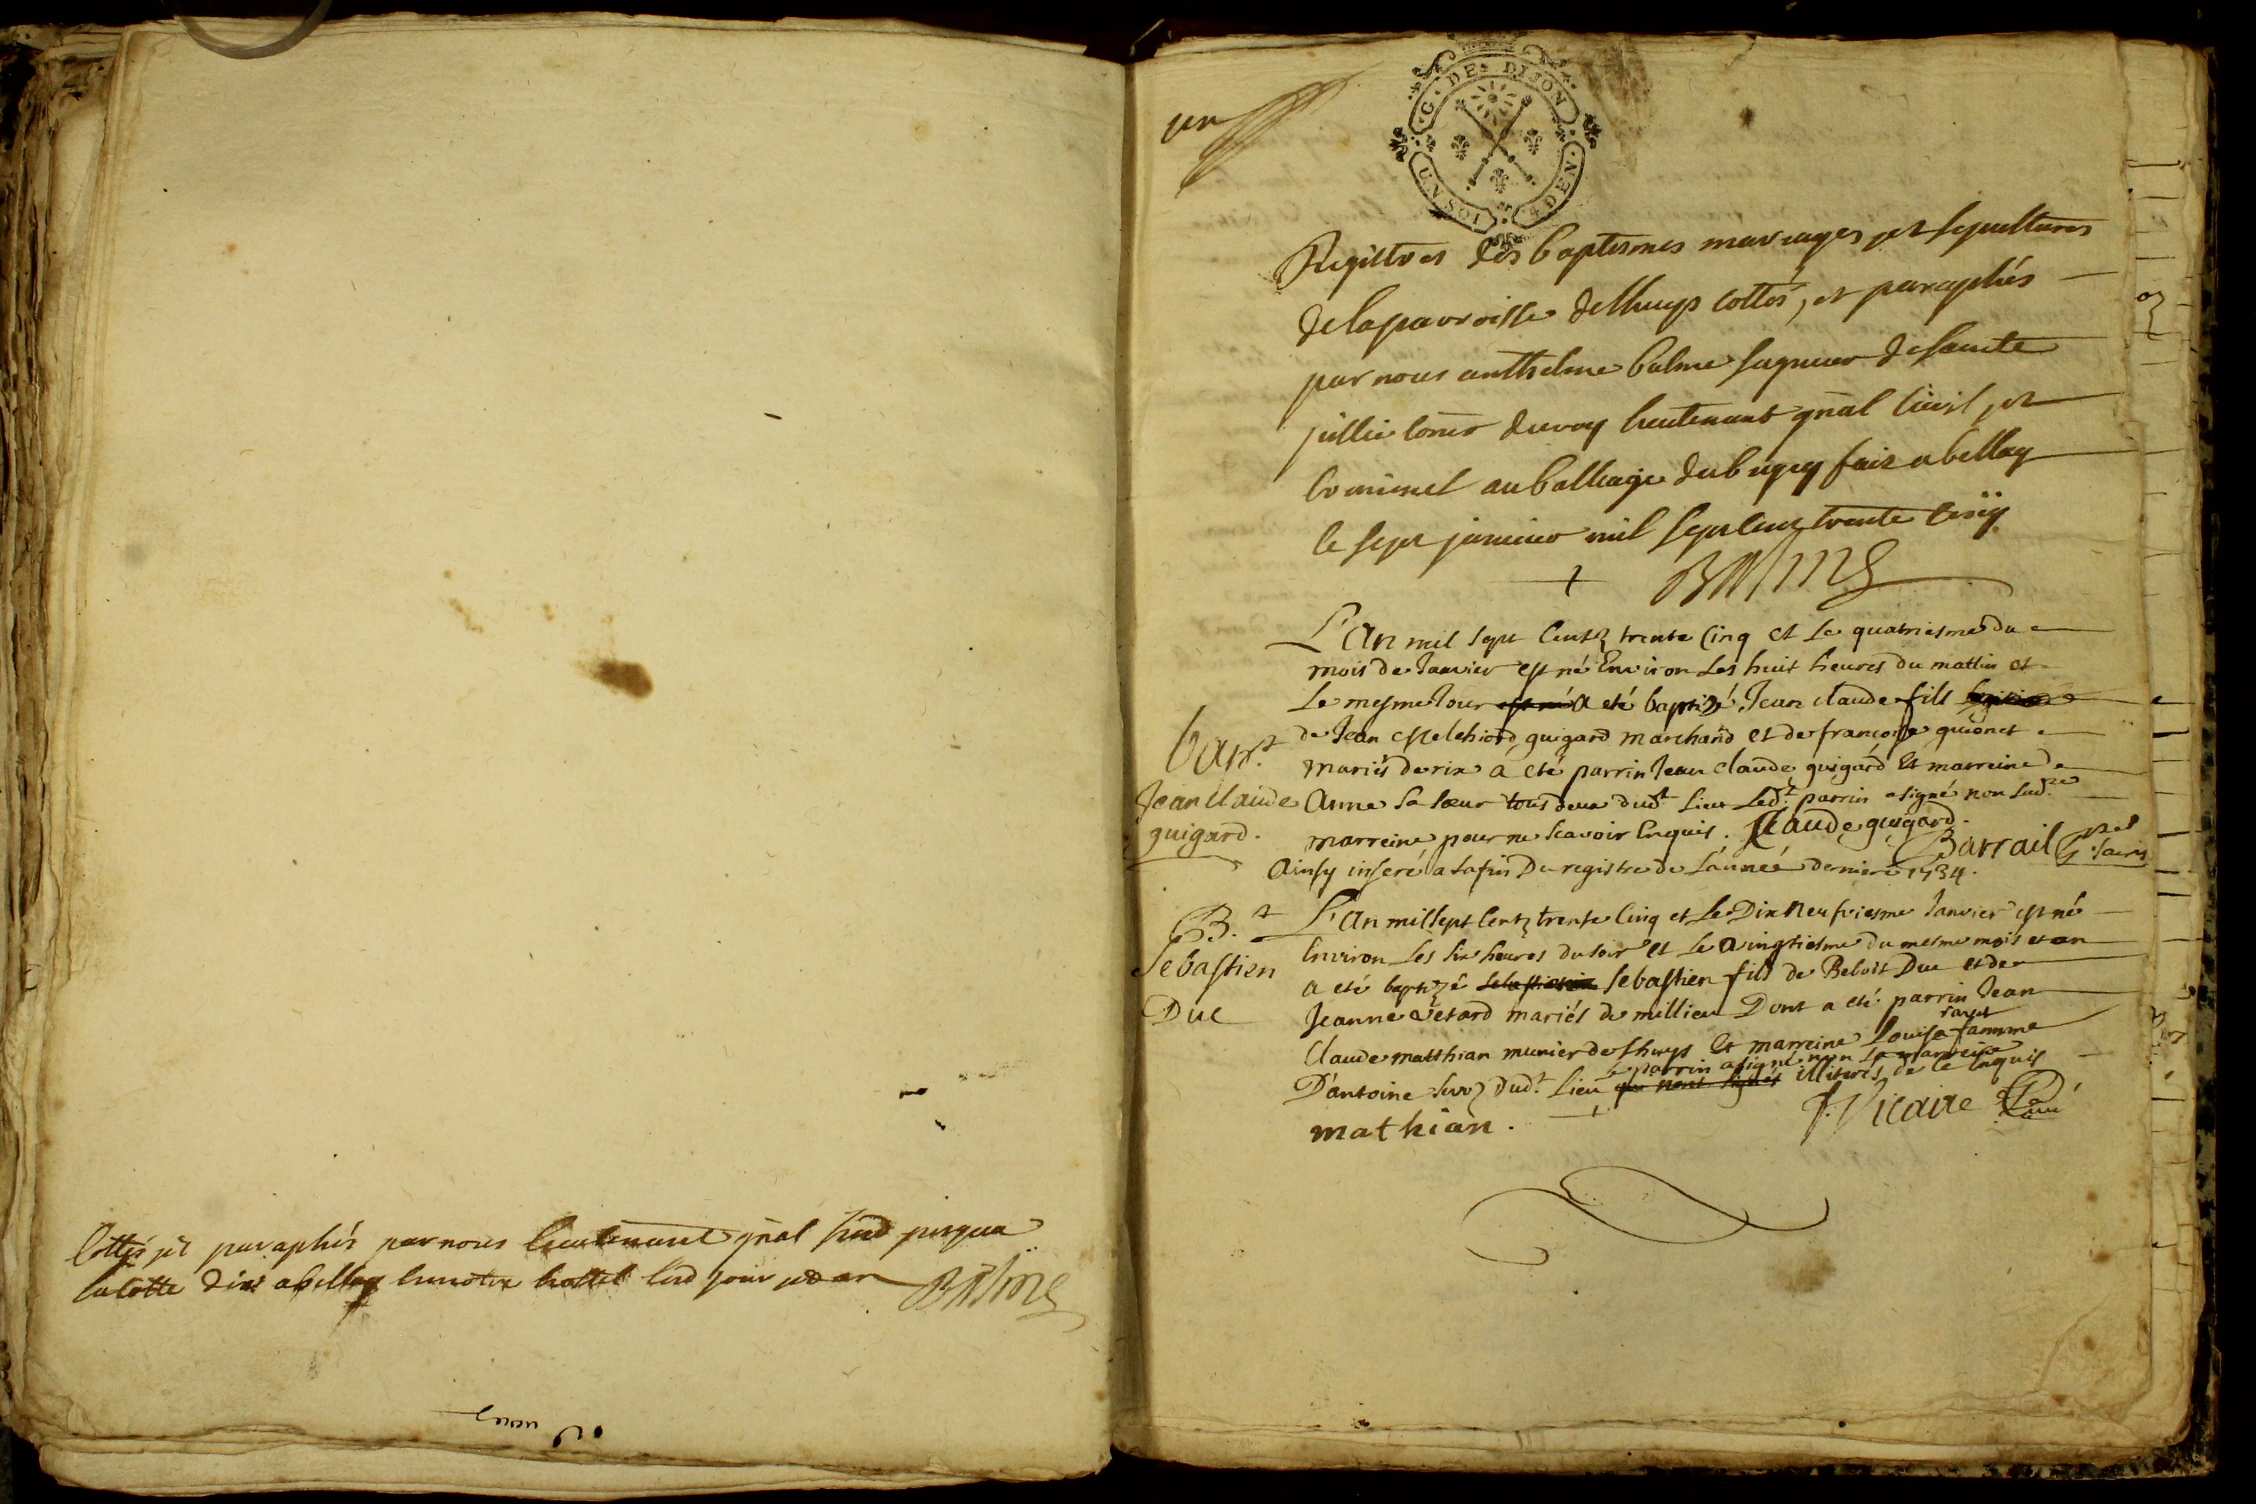 Cottés et paraphés par nous lieutenant gñal susd jusqua
la cotte dix a belley hostel lesd jour et an Balme
un
G. DE DIJON
UN SOL 4 DEN.
Registres des baptesmes mariages et sepultures
de la parroisse de lhuys cottés, et paraphés
par nous anthelme balme seigneur de sainte
jullie coner du roy lieutenant gñal civil et
criminel au balliage du bugey fait a belley
le sept janvier mil sept cent trente cinq
Balme
L'an mil sept Centz trente Cinq et Le quatriesme du
mois de Janvier est né Environ Les huit heures du mattin et
Le mesme Jour est né a eté baptizé Jean claude fils
de Jean Melchiord guigard marchand et de françoise guionet
mariés de rix a eté parrin Jean claude guigard Et marreine
Anne sa sœur tous deux dud.t Lieu Led.t parrin a signé non Lad.te
marreine pour ne scavoir Enquis. J Claude guigard.
Barrail
Ainsy inseré a La fin Du registre de L'année derniere 1734.
Bap.t
Jean Claude
guigard.
L'an mil sept Centz trente Cinq et Le Dix neufviesme Janvier est né
Environ Les six heures du soir et Le vingtiesme du mesme mois et an
a eté baptizé sebastien fils de Beloit Duc et de
Jeanne Vetard mariés de millieu Dont a eté parrin Jean
Claude matthian munier de Lhuys Et marreine Louise famme
D'antoine dud.t Lieu Le parrin a signé non La marreine
qui n'ont signés illiterés de ce Enquis
mathian. J. Vicaire
B.t
Sebastien
Duc